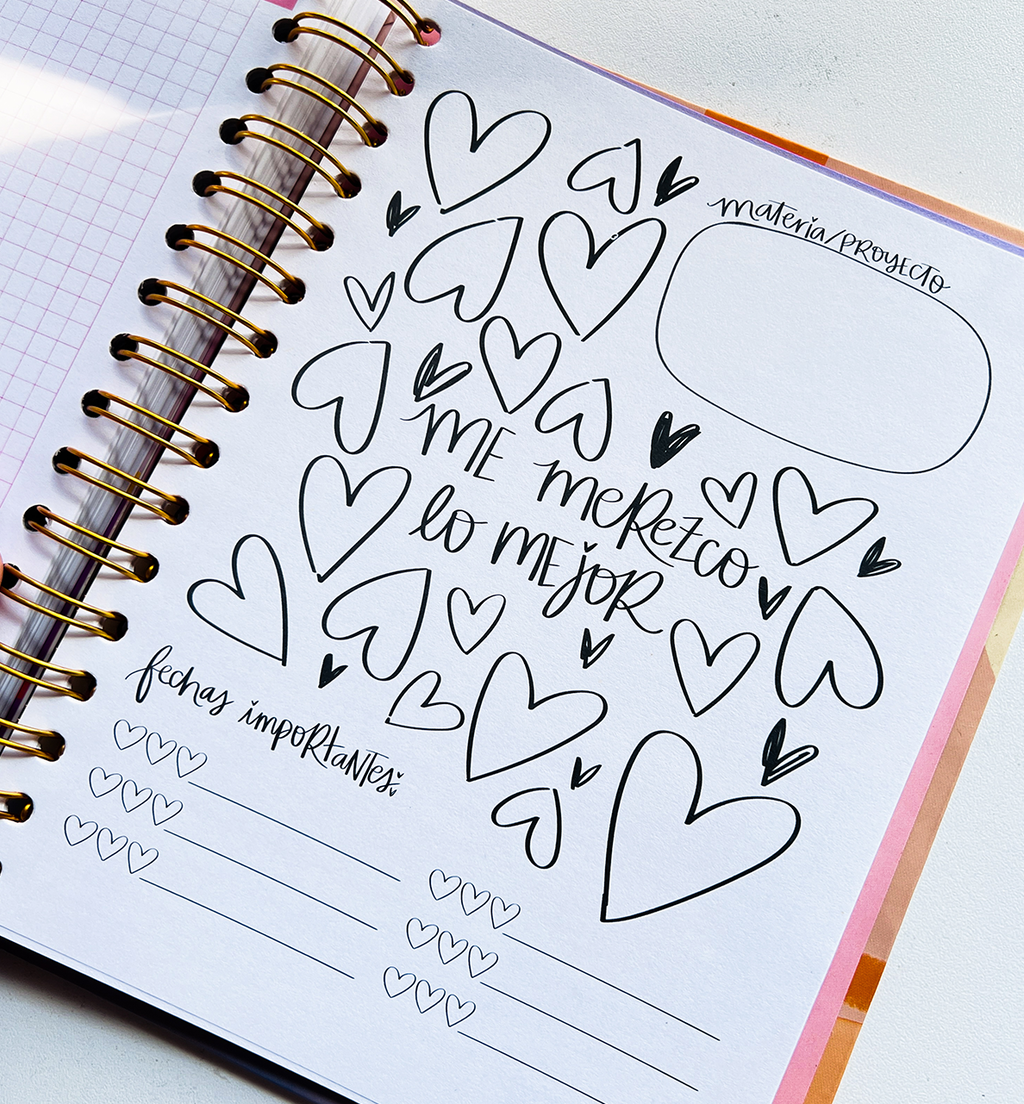 materia/PROYECTO
ME MEREZCO
lo MEJOR
fechas IMPORTANTES: